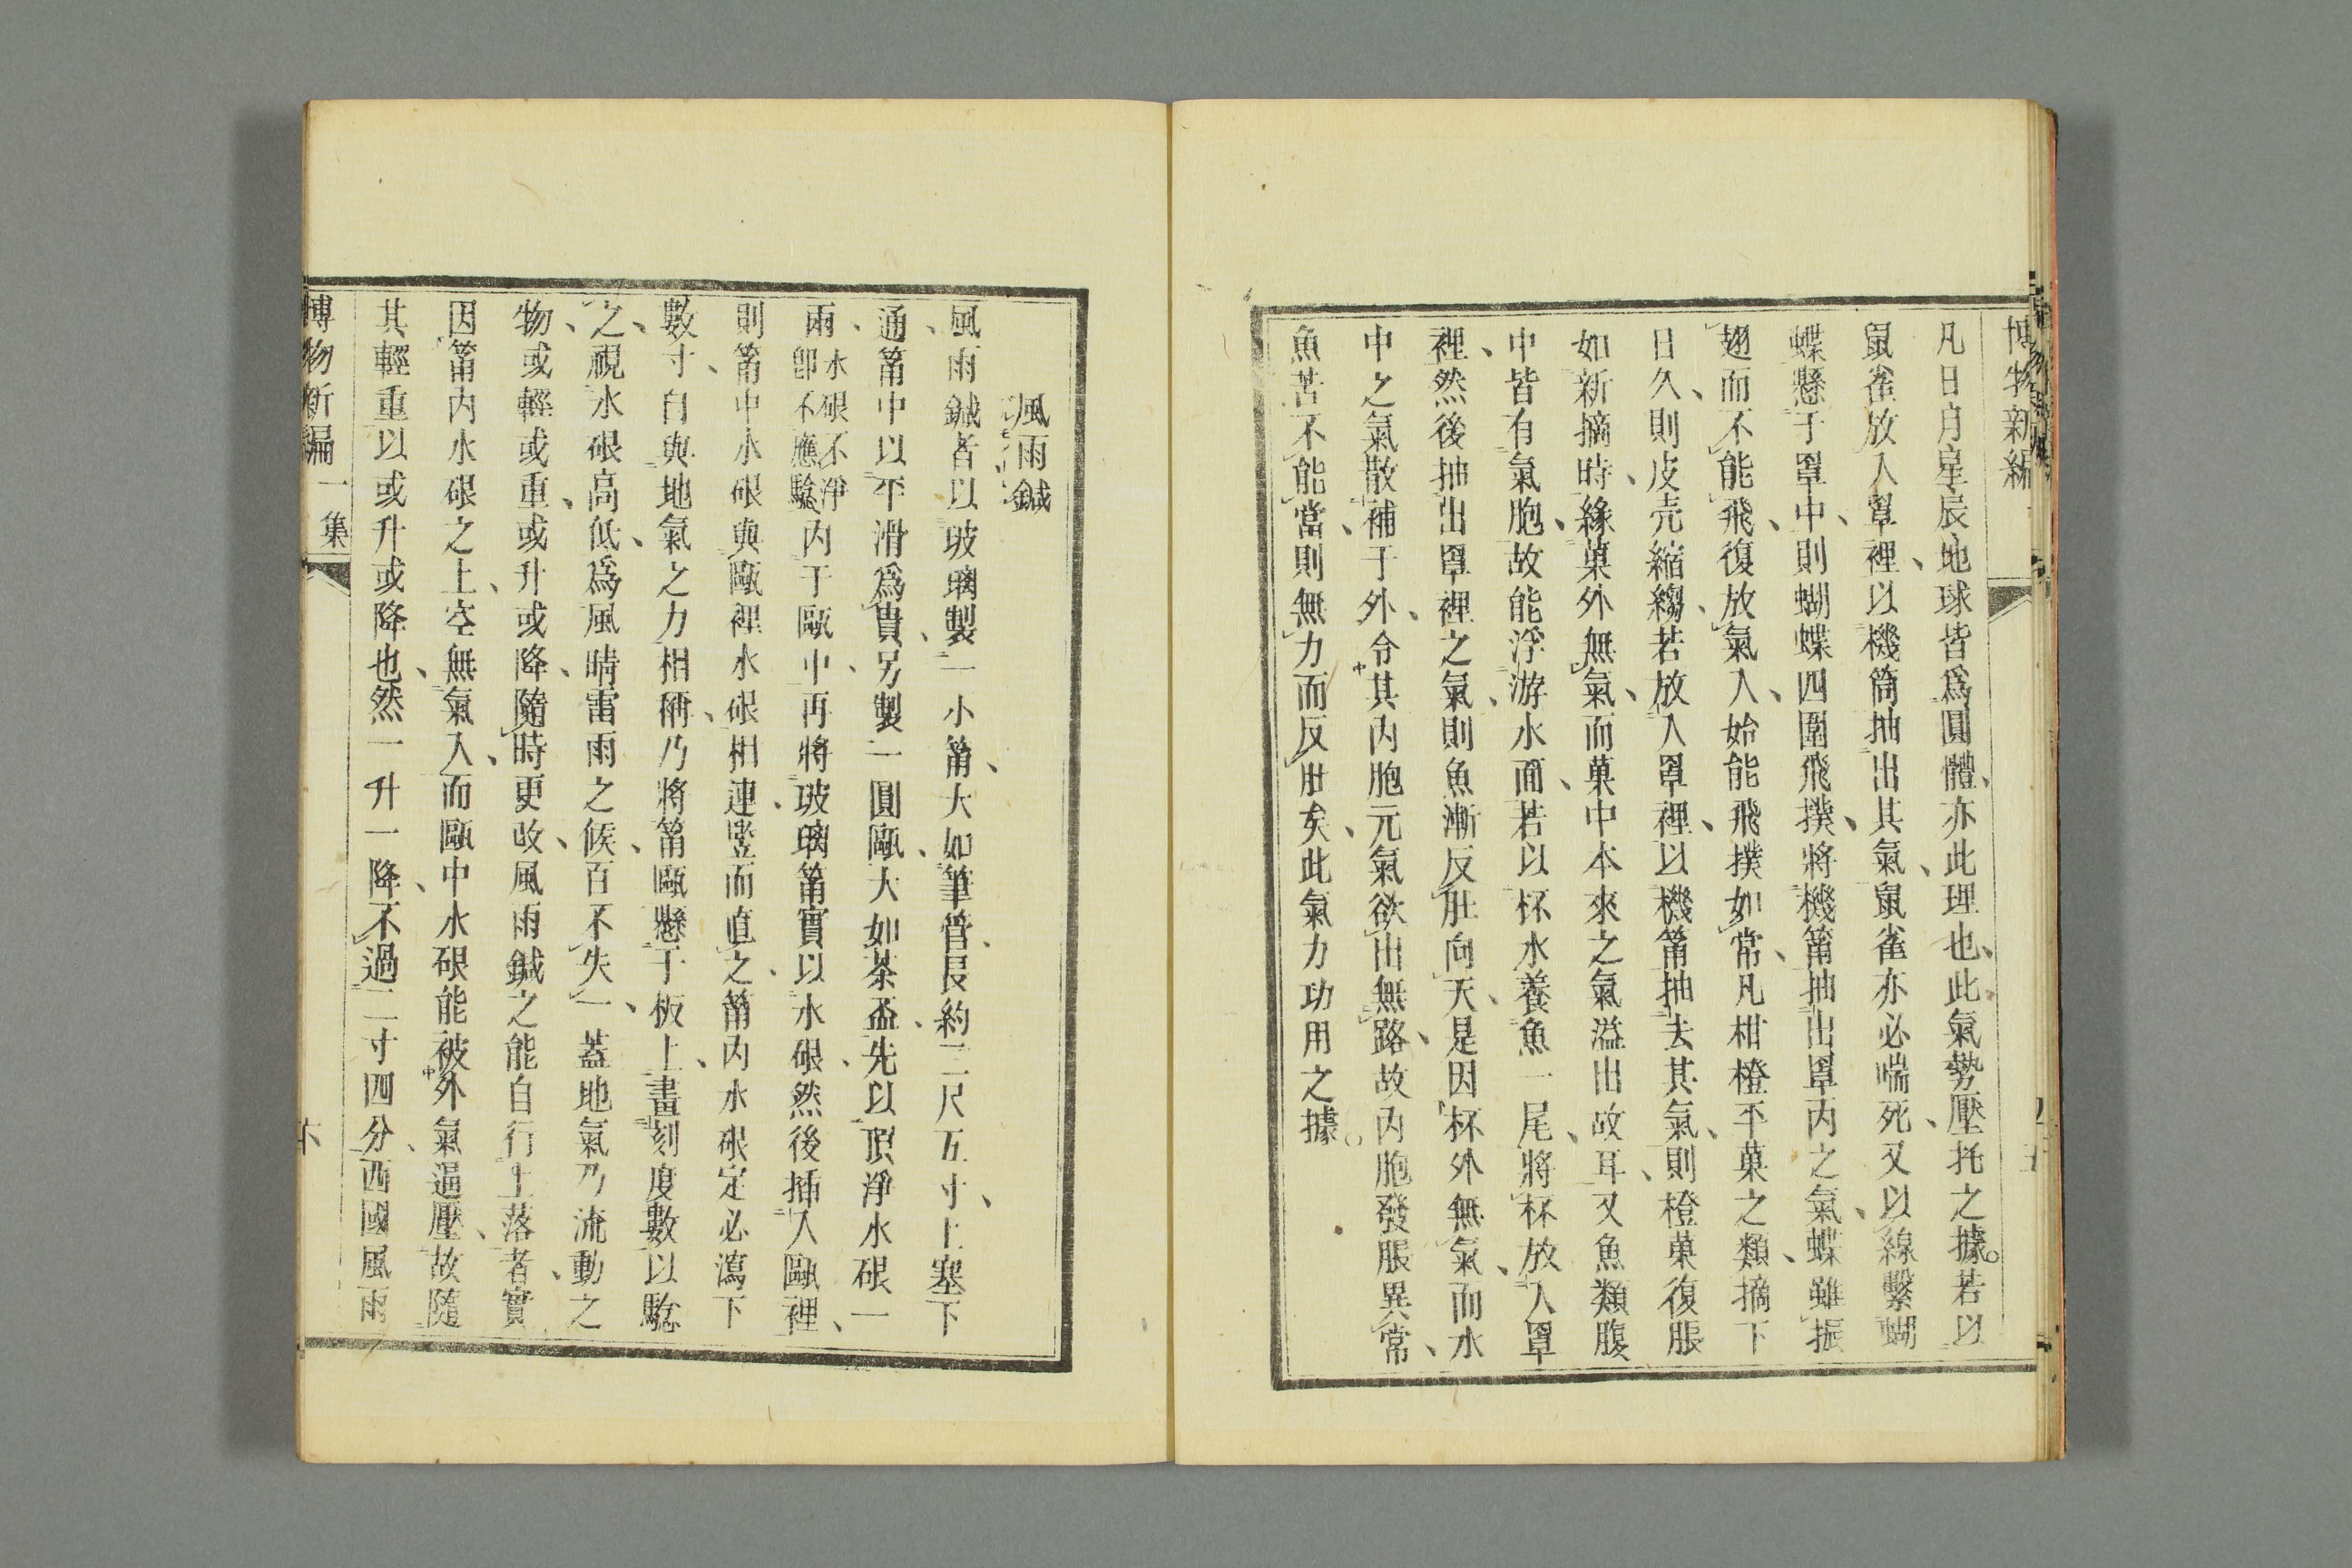 博物新編
凡日月星辰地球皆爲圓體亦此理也此氣勢壓托之據若以
鼠雀放入罩裡以機筒抽出其氣鼠雀亦必喘死又以線繫蝴
蝶懸于罩中則蝴蝶四圍飛撲將機筩抽出罩內之氣蝶雖振
翅而不能飛復放氣入始能飛撲如常凡柑橙平菓之類摘下
日久則皮壳縮縐若放入罩裡以機筩抽去其氣則橙菓復脹
如新摘時緣菓外無氣而菓中本來之氣溢出故耳又魚類腹
中皆有氣胞故能浮游水面若以杯水養魚一尾將杯放入罩
裡然後抽出罩裡之氣則魚漸反肚向天是因杯外無氣而水
中之氣散補于外令其內胞元氣欲出無路故內胞發脹異常
魚苦不能當則無力而反肚矣此氣力功用之據
風雨鍼
風雨鍼者以玻璃製一小筩大如筆管長約二尺五寸上塞下
通筩中以平滑爲貴另製一圓甌大如茶盃先以頂淨水硍一
兩水硍不淨卽不應驗內于甌中再將玻璃筩實以水硍然後插入甌裡
則筩中水硍與甌裡水硍相連豎而直之筩內水硍定必瀉下
數寸自與地氣之力相稱乃將筩甌懸于板上畫刻度數以驗
之視水硍高低爲風晴雷雨之候百不失一蓋地氣乃流動之
物或輕或重或升或降隨時更改風雨鍼之能自行上落者實
因筩內水硍之上空無氣入而甌中水硍能被外氣逼壓故隨
其輕重以或升或降也然一升一降不過二寸四分西國風雨
博物新編 一集